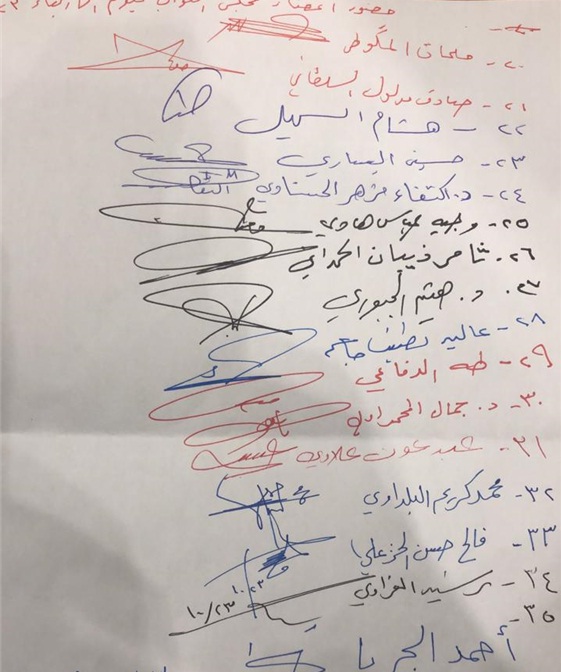 حضور اعضاء مجلس النواب ليوم الأربعاء
٢٠- ملحان المگوطر
٢١- صادق مدلول السلطاني
٢٢- هشام السهيل
٢٣- حسين اليساري
٢٤- د. اكتفاء مزهر الحسناوي
٢٥- وجيه عباس هادي
٢٦- ثامر ذيبان الحمداني
٢٧- د. هيثم الجبوري
٢٨- عالية نصيف جاسم
٢٩- طه الدفاعي
٣٠- د. جمال المحمداوي
٣١- عبد عون علاوي
٣٢- محمد كريم البلداوي
٣٣- فالح حسن الخزعلي
١٠/٢٣
٣٤- برشيد العزاوي
١٠/٢٣
٣٥-
أحمد الجربا